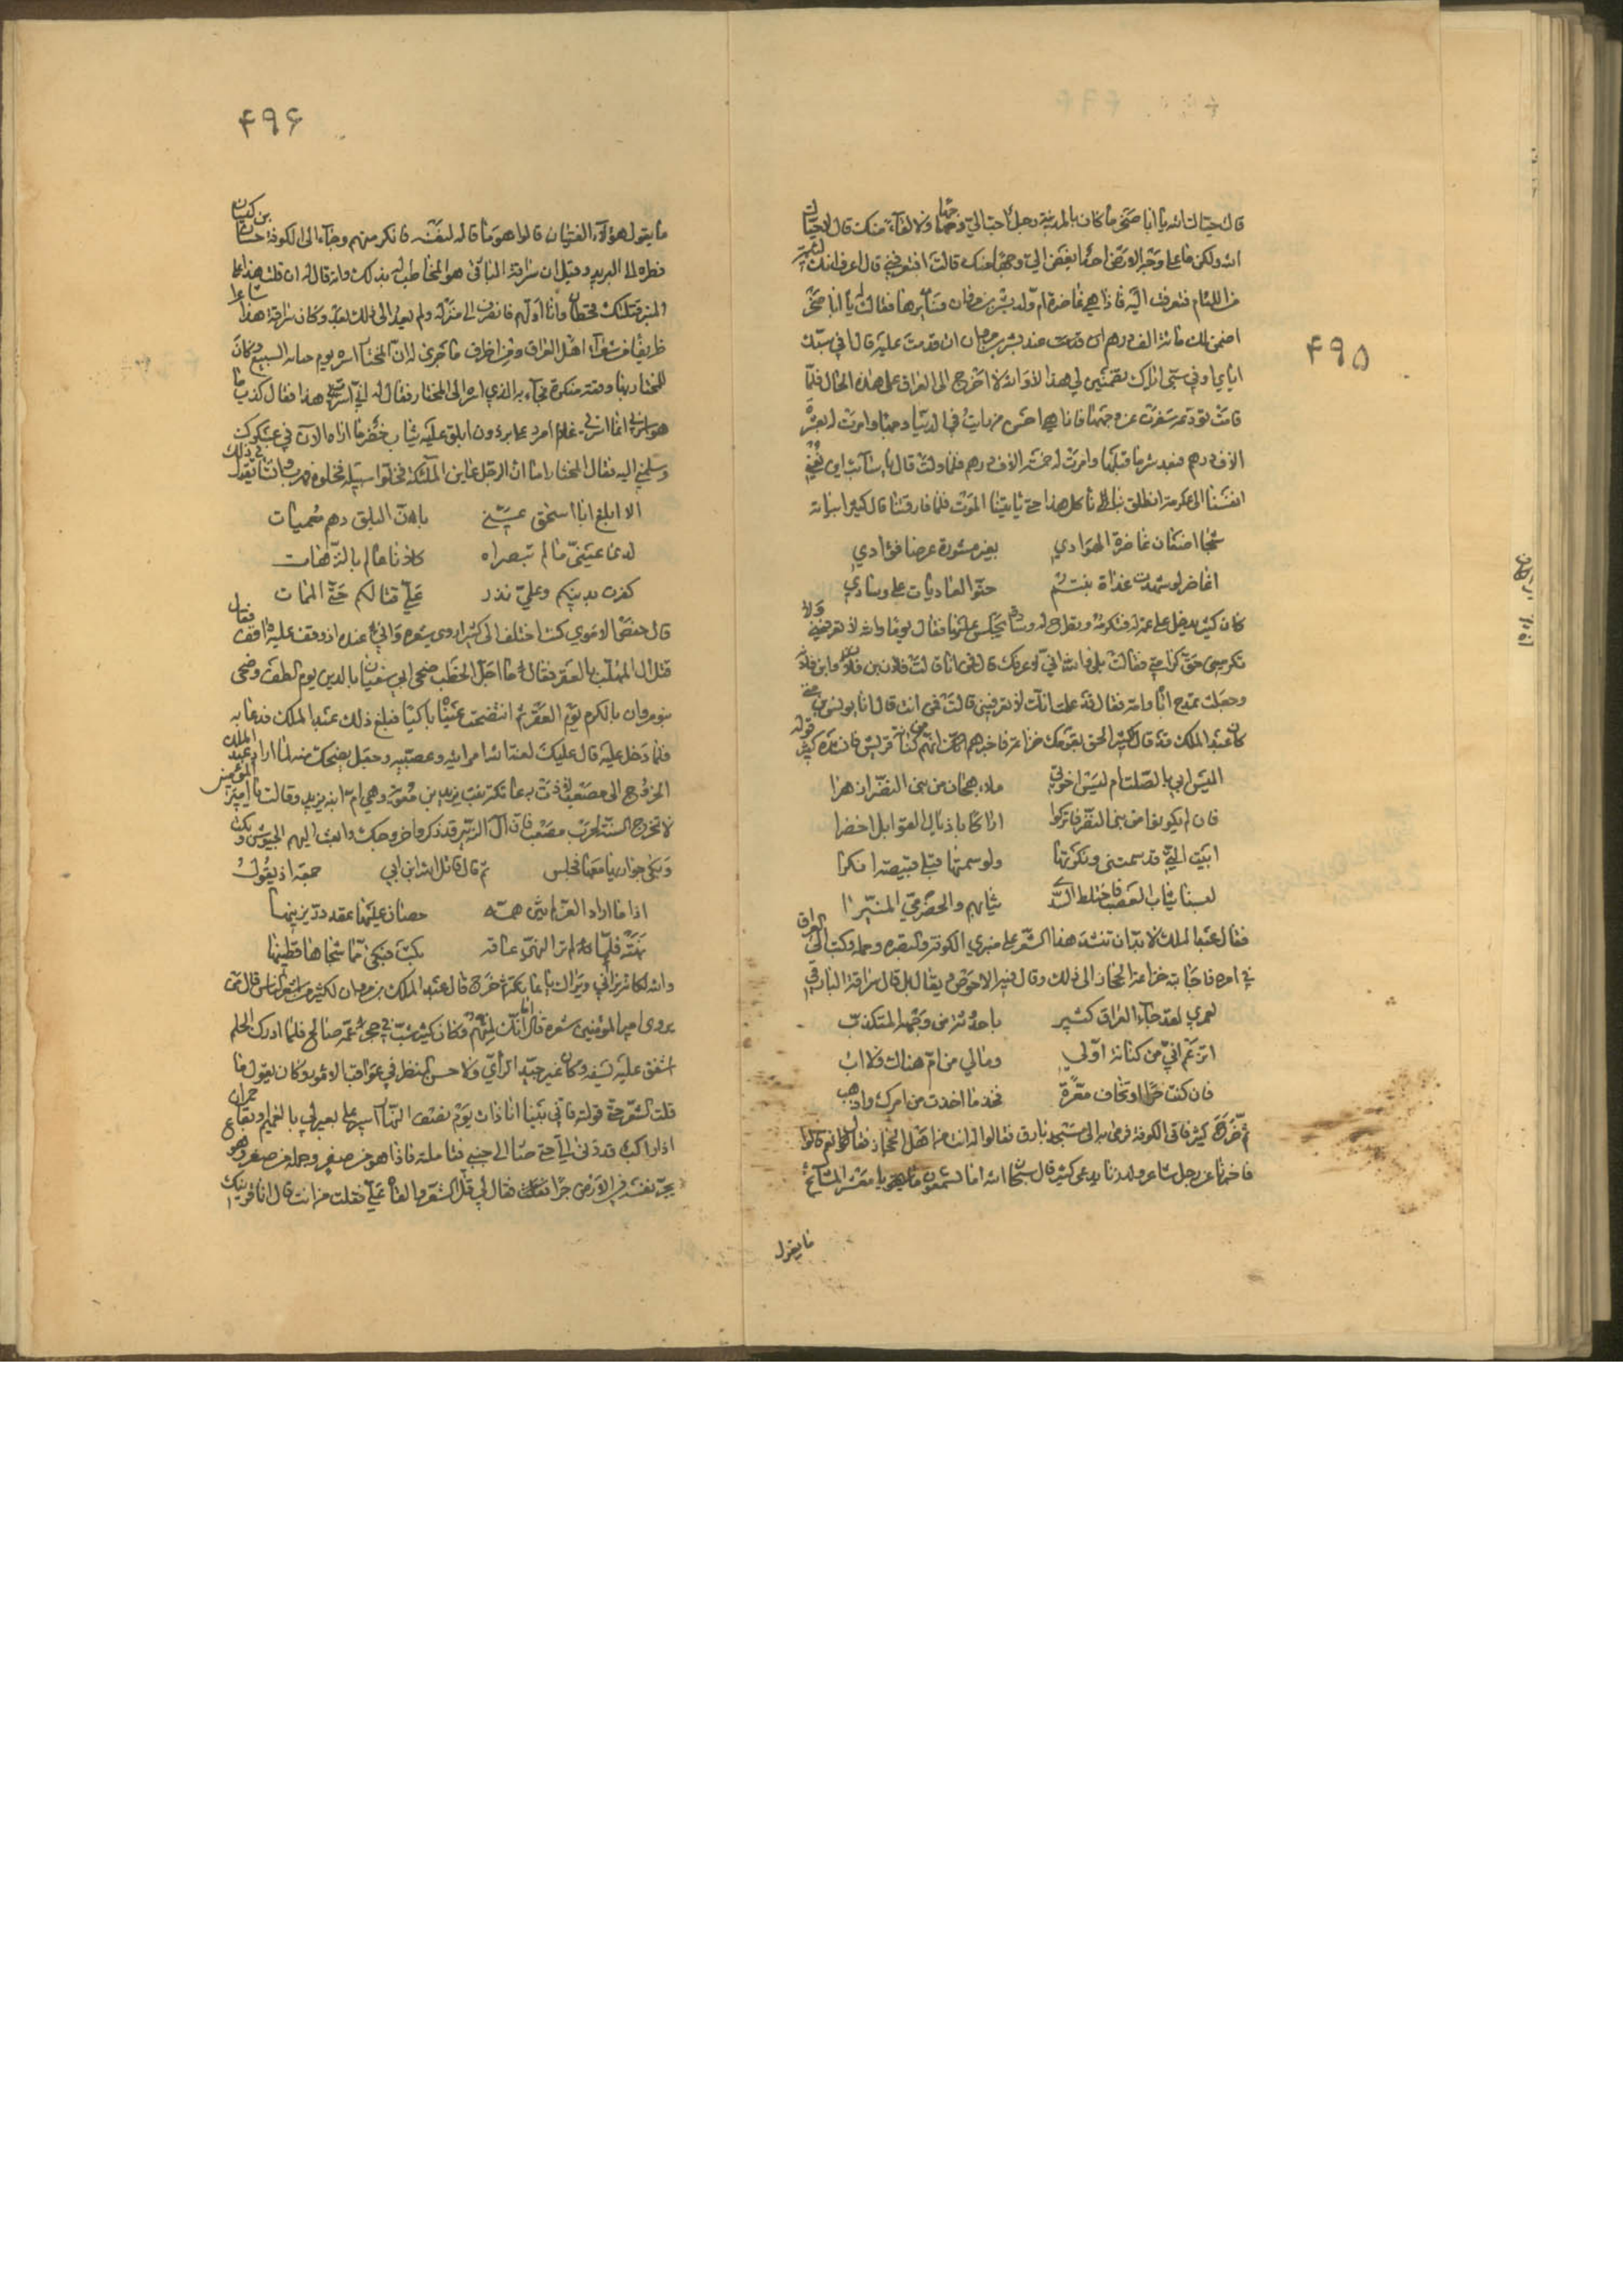 ۴۹۵
قال حياك الله يا ابا صخر ما كان بالمدينة رجل احب الي وجها ولا لقاء منك قال لا حياك
الله ولكن ما على وجه الارض احد ابغض الي وجها منك قالت اتعرفني قال اعرف انك
من اللئام فتعرفت اليه فاذا هي غاضرة ام ولد بشر بن مروان فسايرها فقالت يا ابا صخر
اضمن لك مائة الف درهم عند بشر بن مروان ان قدمت عليه قال افي سبك
اياي او في سبي اياك تضمنين لي هذا لا والله لا اخرج الى العراق على هذه الحال فلما
قامت تودعه سفرت عن وجهها فاذا هي احسن من رايت من الدنيا وجها وامرت له بعشرة
الاف درهم فبعد شر ما قبلها وامرت له بخمسة الاف درهم فلما ولت قال يا سائب اين نعني
انفسنا الى عكرمة انطلق بنا ناكل هذا حتى ياتينا الموت فلما فارقتنا قال كثير ابياته
شجا اضغان غاضرة الهوادي بغير مشورة عرضا فؤادي
اغاضر لو شهدت غداة بنتم حنو العائدات على وسادي
كان كثير يدخل على عمة له فتكرمه وتطرح له وسادة يجلس عليها فقال يوما والله لا تعرفيني ولا
تكرميني حق كرامتي فقالت بلى والله اني لاعرفك قال فمن انا قالت فلان بن فلان وابن فلانة
وجعلت تمدح اباه وامه فقال قد علمت انك لا تعرفيني قالت فمن انت قال انا يونس بن متى
كان عبد الملك قد قال لكثير الحق بقومك خزاعة فاخبرهم انك من كنانة قريش فانشده كثير قوله
اليس ابي بالصلت ام ليس اخوتي بكل هجان من بني النضر ازهرا
فان لم تكونوا من بني النضر فاتركوا اراكا باذناب الفوائل اخضرا
ابيت التي قد سمتني ونكرتها ولو سمتها قبلي قبيصة انكرا
لبسنا ثياب العصب فاختلط السدى بنا وبهم والحضرمي المنيرا
فقال عبد الملك لا بد ان تنشد هذا الشعر على منبري الكوفة والبصرة وحمله وكتب الى العراق
في امره فاجابته خزاعة الحجاز الى ذلك وقال فيه الاحوص ويقال بل قال سراقة البارقي
لعمري لقد جاء العراق كثير باحدوثة من وحيه المتكذب
ايزعم اني من كنانة اولي وما لي من ام هناك ولا اب
فان كنت حرا او تخاف معرة فخذ ما اخذت من اميرك واذهب
ثم خرج كثير فاتى الكوفة فرمى به الى مسجد بارق فقالوا له انت من اهل الحجاز فقال نعم قالوا
فاخبرنا عن رجل شاعر ولد زنا يدعى كثير قال سبحان الله اما تسمعون يا معشر المشايخ
ما يقول
۴۹۶
ما يقول هؤلاء الفتيان قالوا هو ما قاله لنفسه فانكر منهم وجاء الى الكوفة حسان بن كيسان
فطره له البريد وقيل ان سراقة البارقي هو المخاطب له بذلك وانه قال له ان قلت هذا على
المنبر قتلتك قحطان وانا اولهم فانصرف الى منزله ولم يعد الى ذلك بعد وكان سراقة هذا شاعرا
ظريفا من شعراء اهل العراق ومن اظرف ما جرى له ان المختار اسره يوم جبانة السبيع وكان
للمختار بها وقعة منكرة فجاء به الذي اسره الى المختار فقال له اني اسرت هذا فقال كذب ما
هو اسرني انما اسرني غلام امرد على برذون ابلق عليه ثياب خضر ما اراه الان في عسكرك
وسلمني اليه فقال المختار اما ان الرجل عاين الملئكة فخلوا سبيله فخلوه فهرب وانشا يقول في ذلك
الا ابلغ ابا اسحق عني بان البلق دهم مصمتات
ارى عيني ما لم تبصراه كلانا عالم بالترهات
كفرت بدينكم وعلي نذر علي قتالكم حتى الممات
قال حفص الاموي كنت اختلف الى كثير اروي شعره واني عنده اذ وقف عليه واقف فقال
قتل ال المهلب بالعقر فقال ما اجل الخطب ضحى ال ابي سفيان بالدين يوم الطف وضحى
بنو مروان بالكرم يوم العقر ثم انتضحت عيناه باكيا فبلغ ذلك عبد الملك فدعا به
فلما دخل عليه قال عليك لعنة الله اترابية وعصبية وجعل يضحك منه لما اراد عبد الملك
الخروج الى مصعب لاذت به عاتكة بنت يزيد بن معوية وهي ام ابنه يزيد وقالت يا امير المؤمنين
لا تخرج السنة لحرب مصعب فان ال الزبير قد ذكروا خروجك وابعث اليهم الجيوش وبكت
وبكى جواريها معها فجلس ثم قال قاتل الله ابن ابي جمعة اذ يقول
اذا ما اراد الغزو لم تثن همه حصان عليها عقد در يزينها
نهته فلما لم تر النهي عاقه بكت فبكى مما شجاها قطينها
والله لكانه يراني ويراك يا عاتكة ثم خرج قال عبد الملك بن مروان لكثير من اشعر الناس قال من
يروي امير المؤمنين شعره قال انك لمنهم وكان كثير شب في حجر عم صالح فلما ادرك الحلم
اشفق عليه لسفهه وكان غير جيد الراي ولا حسن النظر في عواقب الامور وكان يقول ما
قلت الشعر حتى قولته فاني بينا انا ذات يوم نصف النهار اسير على بعير لي بالغميم او بقاع حمران
اذا راكب قد دنى الي حتى صار الى جنبي فتاملته فاذا هو من صفر وحمله من صفر وهو
يجر نفسه في الارض جرا فقال لي قل الشعر والقاه علي فقلت من انت قال انا قرينك